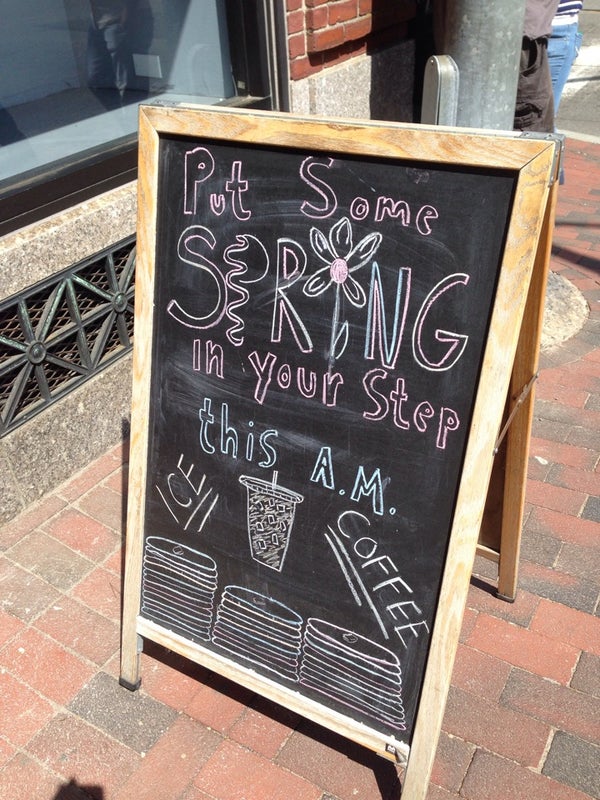 Put Some
SPRING
in your Step
this A.M.
ICE
COFFEE